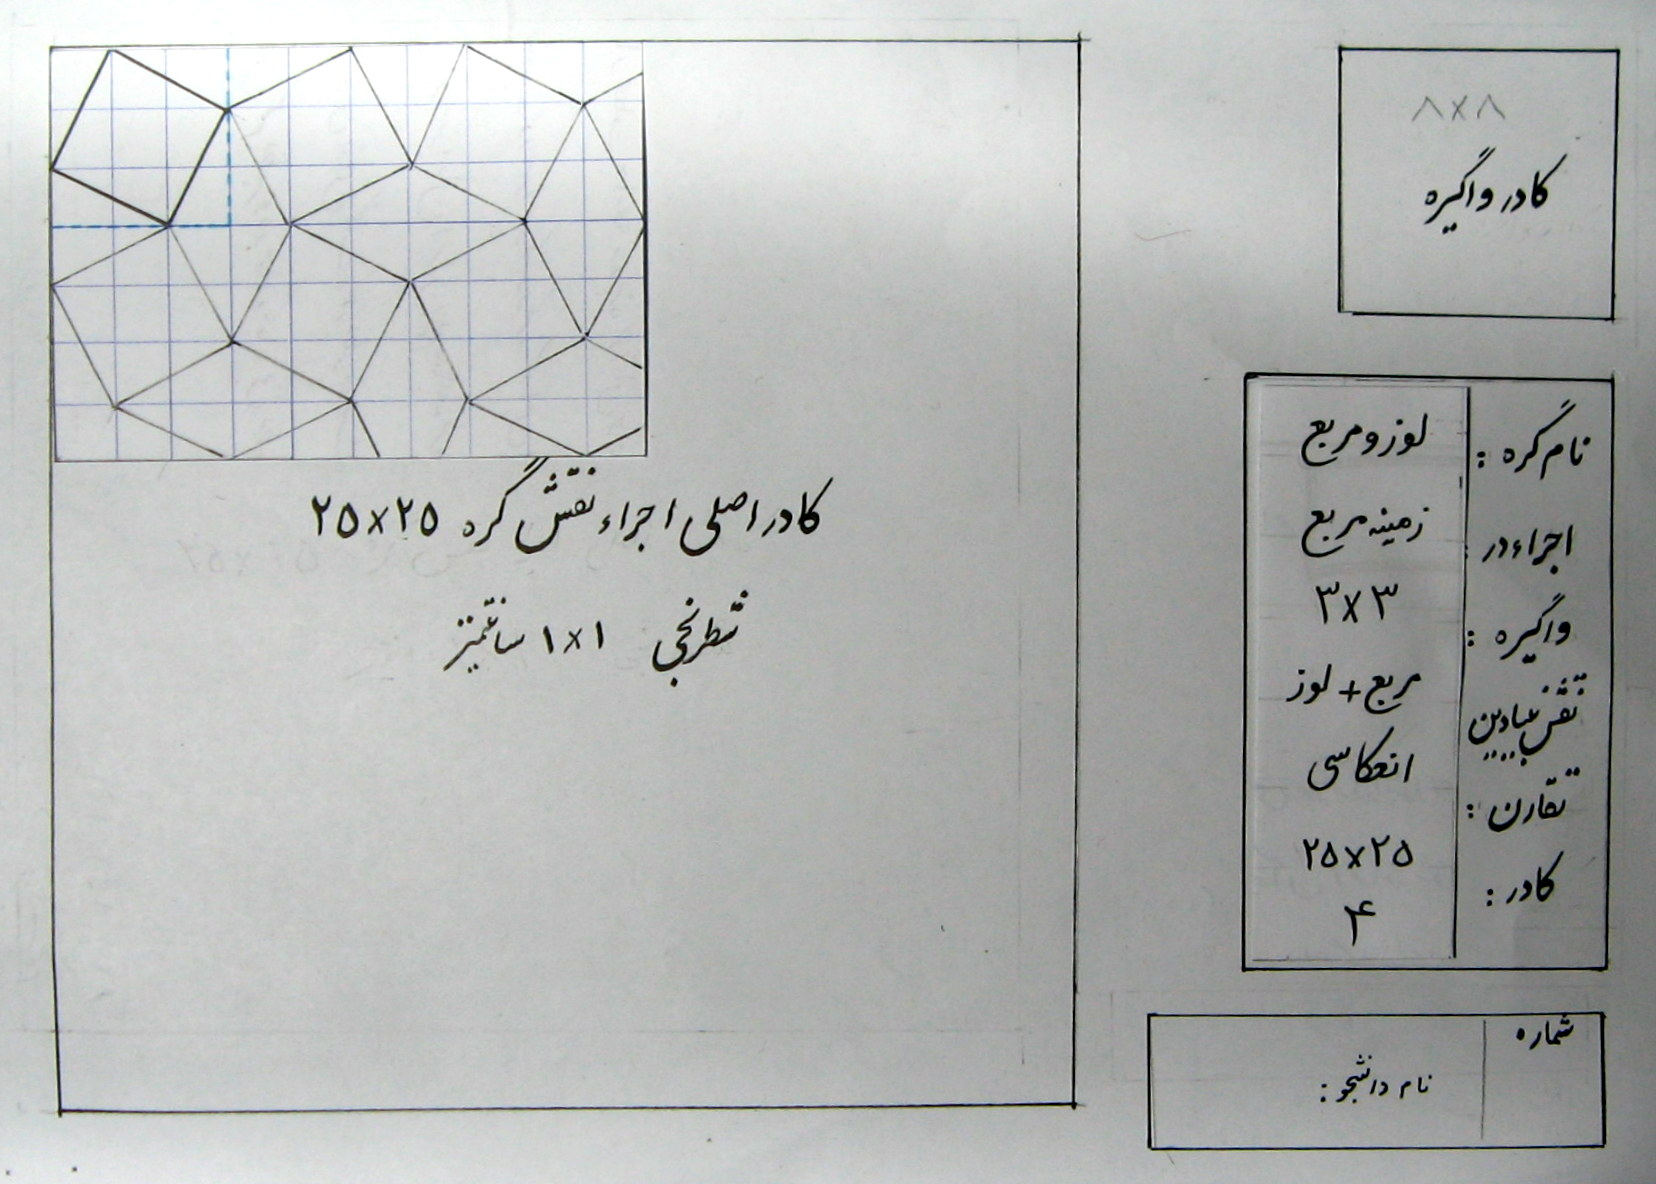 ۸×۸
کادر واگیره
نام گره : لوز و مربع
اجراء در : زمینه مربع
واگیره : ۳×۳
نقش بنیادین مربع + لوز
تقارن : انعکاسی
کادر : ۲۵×۲۵
۴
کادر اصلی اجراء نقش گره ۲۵×۲۵
شطرنجی ۱×۱ سانتیمتر
شماره
نام دانشجو :